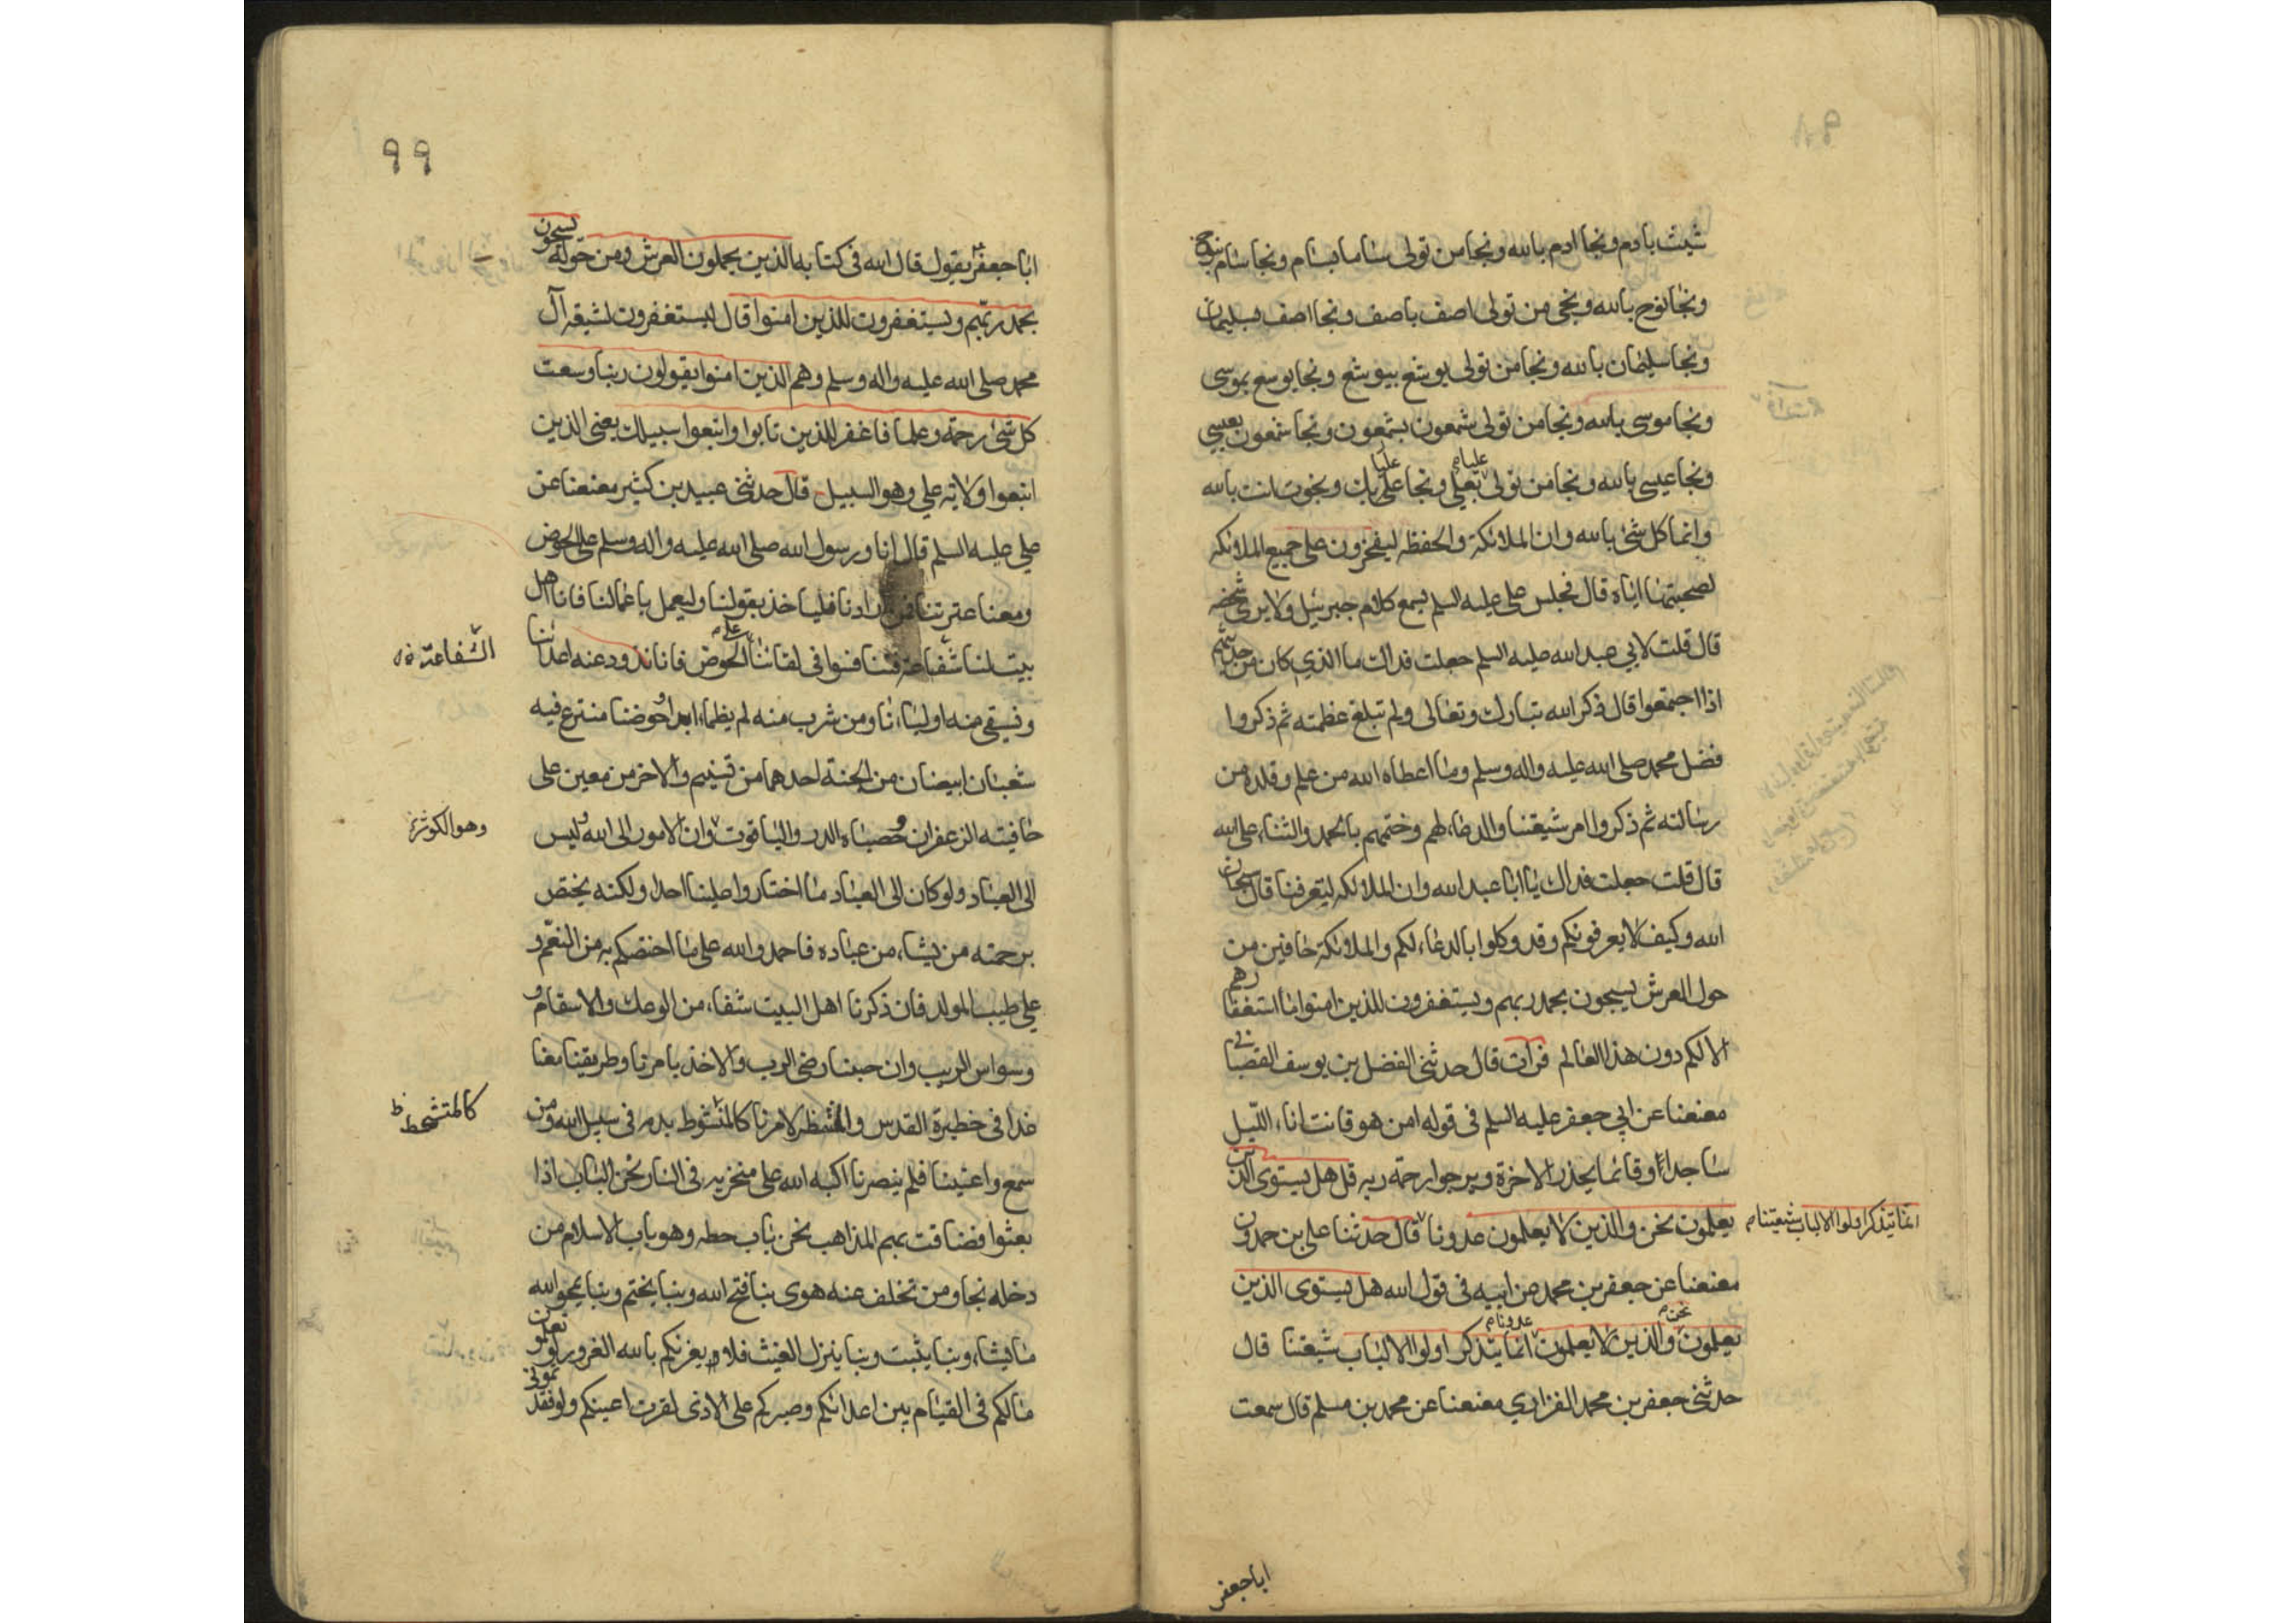 شيث بادم ونجا ادم بالله ونجا من تولى ساما بسام ونجا سام بنوح
ونجا نوح بالله ونجى من تولى اصف باصف ونجا اصف بسليمان
ونجا سليمان بالله ونجا من تولى يوشع بيوشع ونجا يوشع بموسى
ونجا موسى بالله ونجا من تولى شمعون بشمعون ونجا شمعون بعيسى
ونجا عيسى بالله ونجا من تولى عليا بعلي ونجا علي بك ونجوت انت بالله
وانما كل شئ بالله وان الملائكة والحفظه ليفخرون على جميع الملائكه
لصحبتهما اياه قال فجلس على عليه السلم يسمع كلام جبرئيل ولا يرى شخصه
قال قلت لابي عبد الله عليه السلم جعلت فداك ما الذي كان من حديثهم
اذا اجتمعوا قال ذكر الله تبارك وتعالى ولم تبلغ عظمته ثم ذكروا
فضل محمد صلى الله عليه واله وسلم وما اعطاه الله من علم وقلده من
رسالته ثم ذكروا امر شيعتنا والدعاء لهم وختمهم بالحمد والثناء على الله
قال قلت جعلت فداك يا ابا عبد الله وان الملائكه لتعرفنا قال سبحان
الله وكيف لا يعرفونكم وقد وكلوا بالدعاء لكم والملائكة حافين من
حول العرش يسبحون بحمد ربهم ويستغفرون للذين امنوا ما استغفارهم
الا لكم دون هذا العالم فرات قال حدثنى الفضل بن يوسف القصبانى
معنعنا عن ابي جعفر عليه السلم فى قوله امن هو قانت اناء الليل
ساجدا وقائما يحذر الاخرة ويرجوا رحمة ربه قل هل يستوى الذين
يعلمون نحن والذين لا يعلمون عدونا قال حدثنا على بن حمدون
انما يتذكر اولوا الالباب شيعتنا م
معنعنا عن جعفر بن محمد عن ابيه فى قول الله هل يستوى الذين
يعلمون نحن والذين لا يعلمون عدونا انما يتذكر اولوا الالباب شيعتنا قال
حدثنى جعفر بن محمد الفزاري معنعنا عن محمد بن مسلم قال سمعت
ابا جعفر
٩٩
ابا جعفر يقول قال الله فى كتابه الذين يحملون العرش ومن حوله يسبحون
بحمد ربهم ويستغفرون للذين امنوا قال يستغفرون لشيعة آل
محمد صلى الله عليه واله وسلم وهم الذين امنوا يقولون ربنا وسعت
كل شئ رحمة وعلما فاغفر للذين تابوا واتبعوا سبيلك يعنى الذين
اتبعوا ولاية علي وهو السبيل قال حدثنى عبيد بن كثير معنعنا عن
علي عليه السلم قال انا ورسول الله صلى الله عليه واله وسلم على الحوض
ومعنا عترتنا فمن ارادنا فلياخذ بقولنا وليعمل باعمالنا فانا اهل
بيت لنا شفاعة فتنافسوا فى لقائنا على الحوض فانا نذود عنه اعدائنا
الشفاعة
ونسقى منه اوليائنا ومن شرب منه لم يظماء ابدا وحوضنا مترع فيه
شعبان ابيضان من الجنة احدهما من تسنيم والاخر من معين على
حافيته الزعفران وحصباه الدر والياقوت وان الامور الى الله وليس
وهو الكوثر
الى العباد ولو كان الى العباد ما اختاروا علينا احدا ولكنه يختص
برحمته من يشاء من عباده فاحمدوا الله على ما اختصكم به من النعم و
على طيب المولد فان ذكرنا اهل البيت شفاء من الوعك والاسقام و
وسواس الريب وان حبنا رضى الرب والاخذ بامرنا وطريقتنا معنا
غدا فى حظيرة القدس والمنتظر لامرنا كالمتشوط بدمه فى سبيل الله ومن
كالمتشحط ظ
سمع واعيتنا فلم ينصرنا اكبه الله على منخريه فى النار نحن الباب اذا
بعثوا فضاقت بهم المذاهب نحن باب حطه وهو باب الاسلام من
دخله نجا ومن تخلف عنه هوى بنا فتح الله وبنا يختم وبنا يمحو الله
ما يشاء وبنا يثبت وبنا ينزل الغيث فلا يغرنكم بالله الغرور لو تعلمون
ما لكم فى القيام بين اعدائكم وصبركم على الاذى لقرت اعينكم ولو فقدتمونى